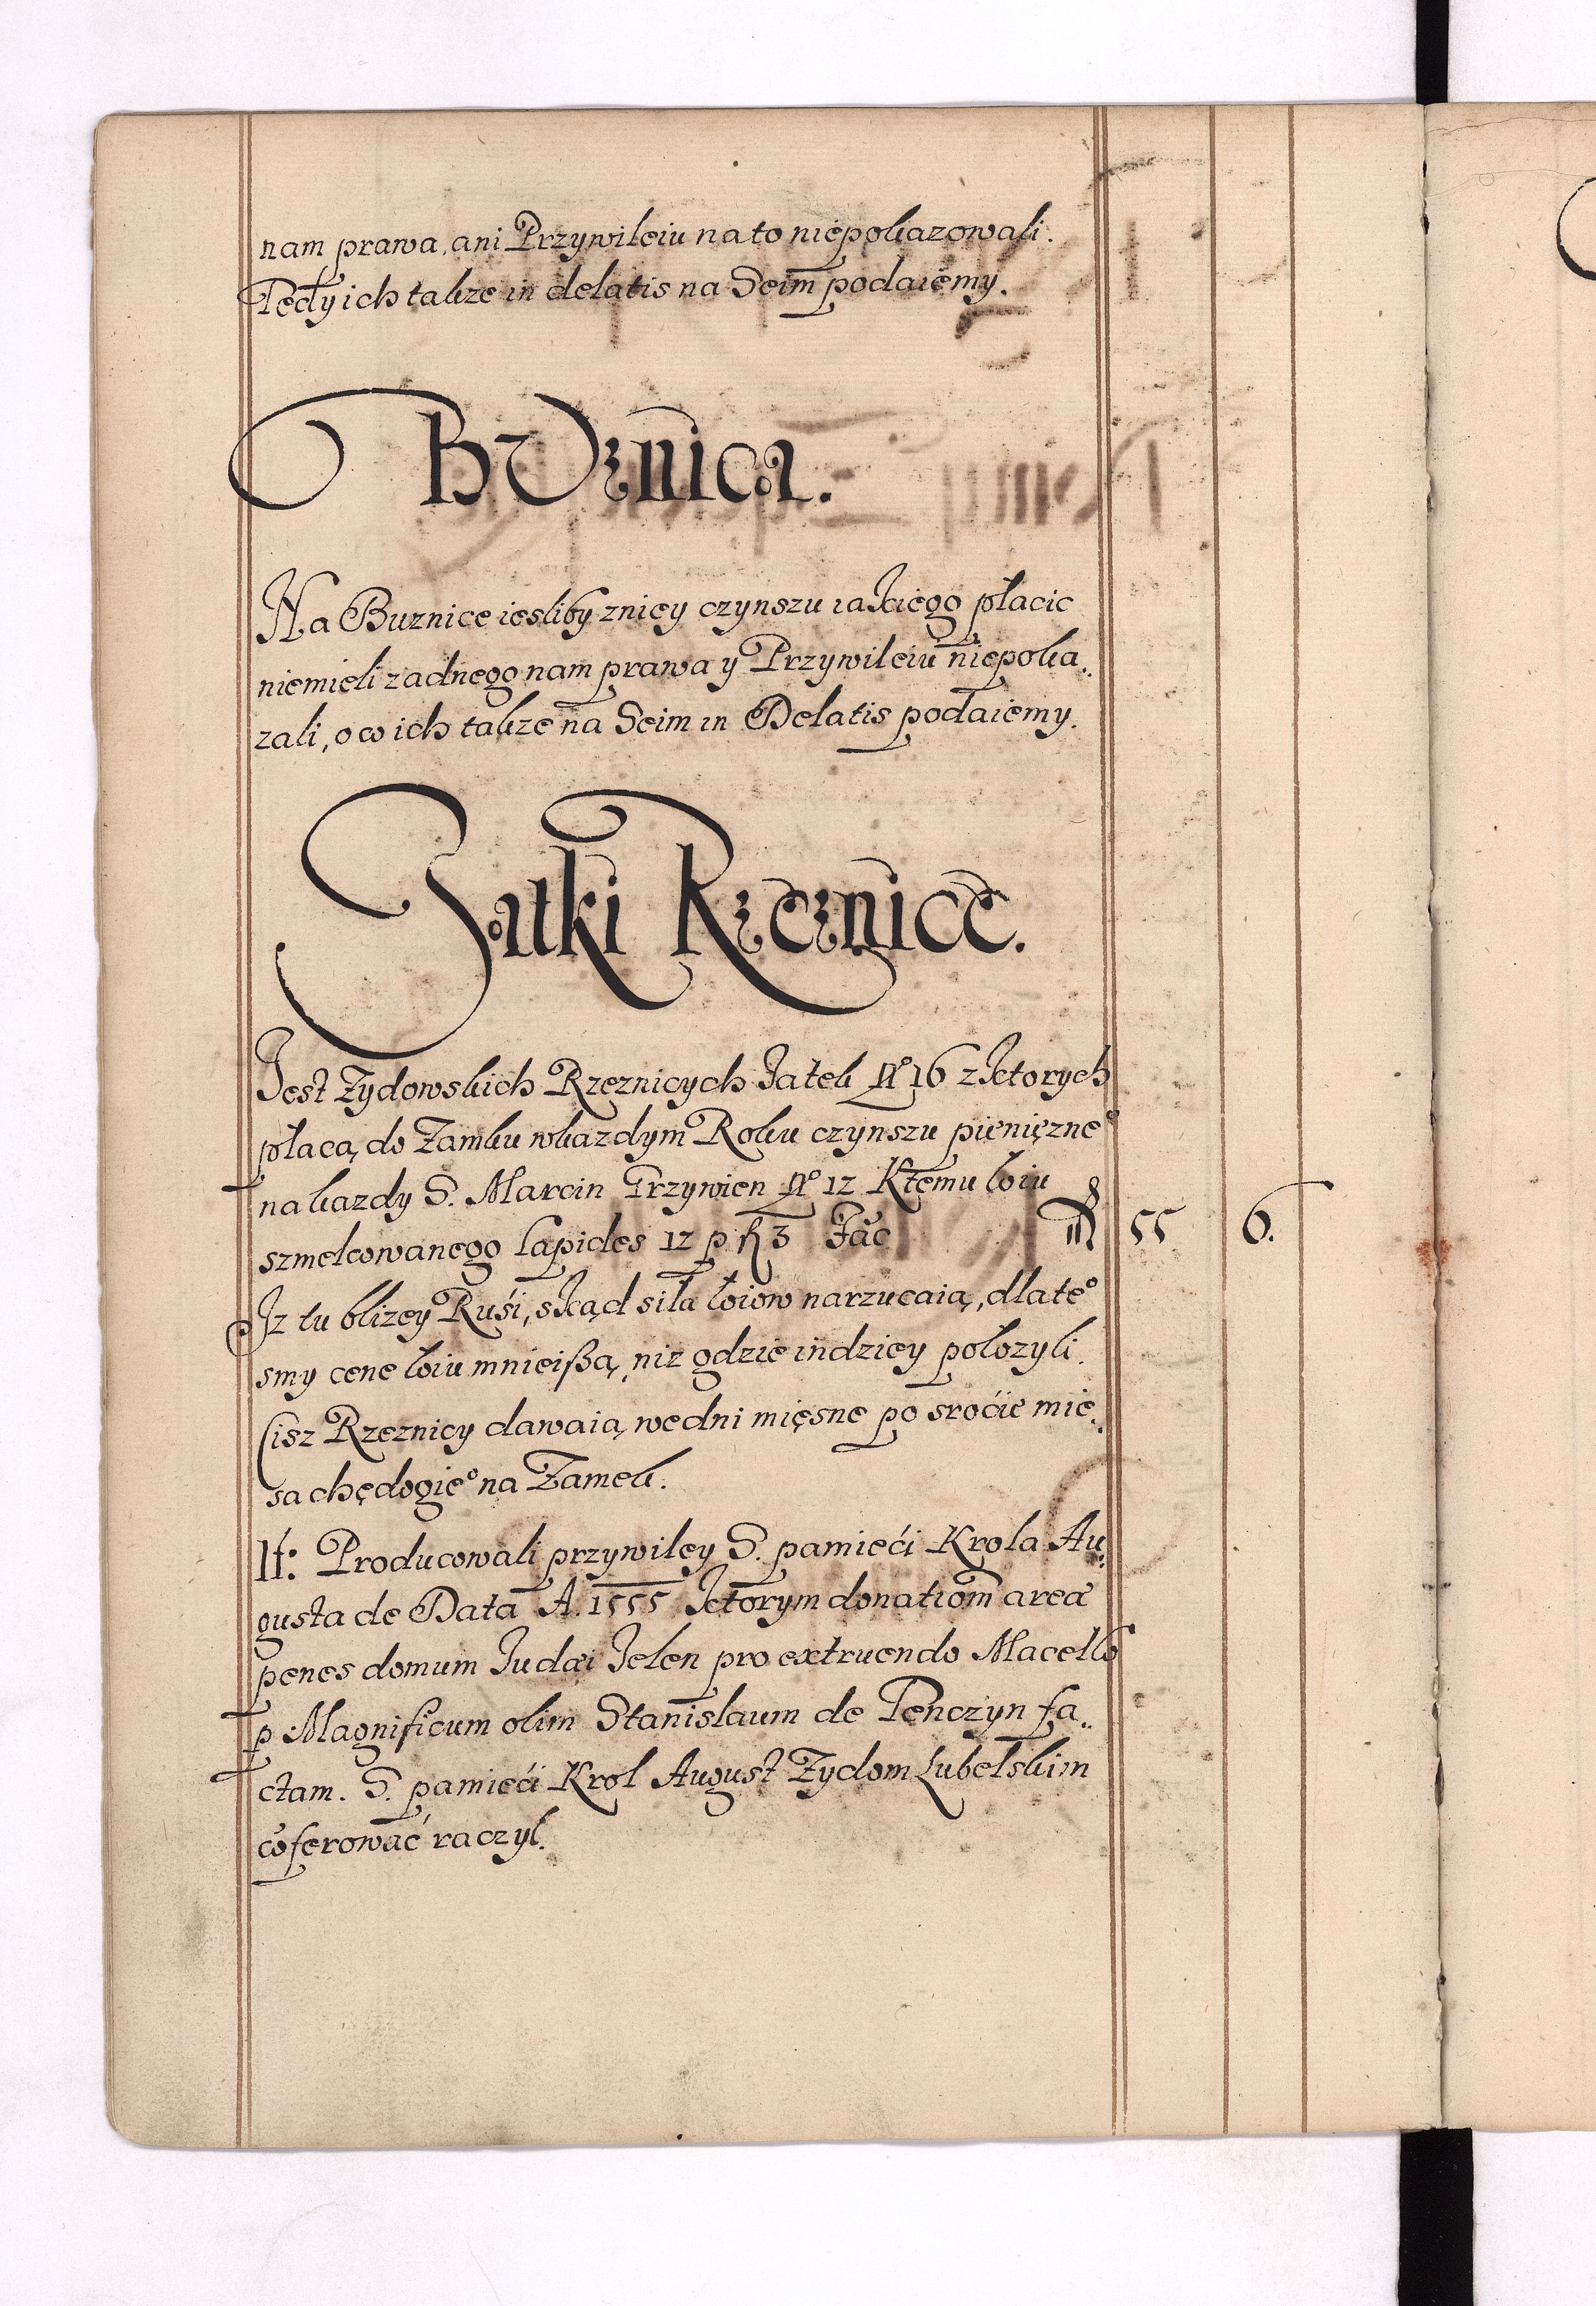 nam prawa, ani Przywileiu na to niepokazowali.
Tedy ich takze in delatis na Seim podaiemy.
Buznica.
Na Buznice iesliby zniey czynszu iakiego płacic
niemieli zadnego nam prawa y Przywileiu niepoka..
zali, o co ich takze na Seim in Delatis podaiemy.
Jatki Rzeznice.
Jest Zydowskich Rzeznicych Jatek No 16 z ktorych
płacą do Zamku wkazdym Roku czynszu pienięzneo
na kazdy S. Marcin Grzywien No 12 Ktemu loiu
szmelcowanego Lapides 12 p fl 3 Fac 55 6.
Jz tu blizey Ruśi, skąd siła łoiow narzucaią, dlateo
smy cene loiu mnieißą, niz gdzie indziey polozyli.
Cisz Rzeznicy dawaią wedni mięsne po sroćie mie..
sa chędogieo na Zamek.
It: Producowali przywiley S. pamiéći Krola Au..
gusta de Data A. 1555 ktorym donationem areæ
penes domum Judæi Jelen pro extruendo Macello
p Magnificum olim Stanislaum de Tenczyn fa..
ctam. S. pamiéći Krol August Zydom Lubelskim
cōferować raczyl.